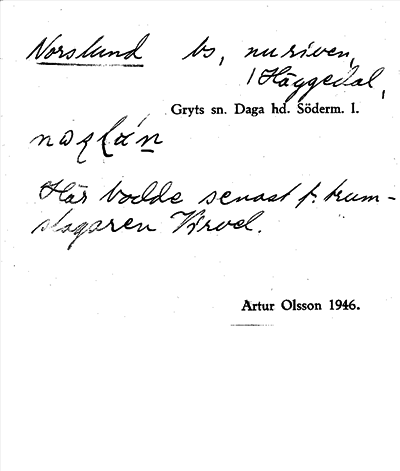 Norslund bs, nu riven,
i Häggedal,
Gryts sn. Daga hd. Söderm. l.
Här bodde senast f. trum-
slagaren Virvel.
Artur Olsson 1946.